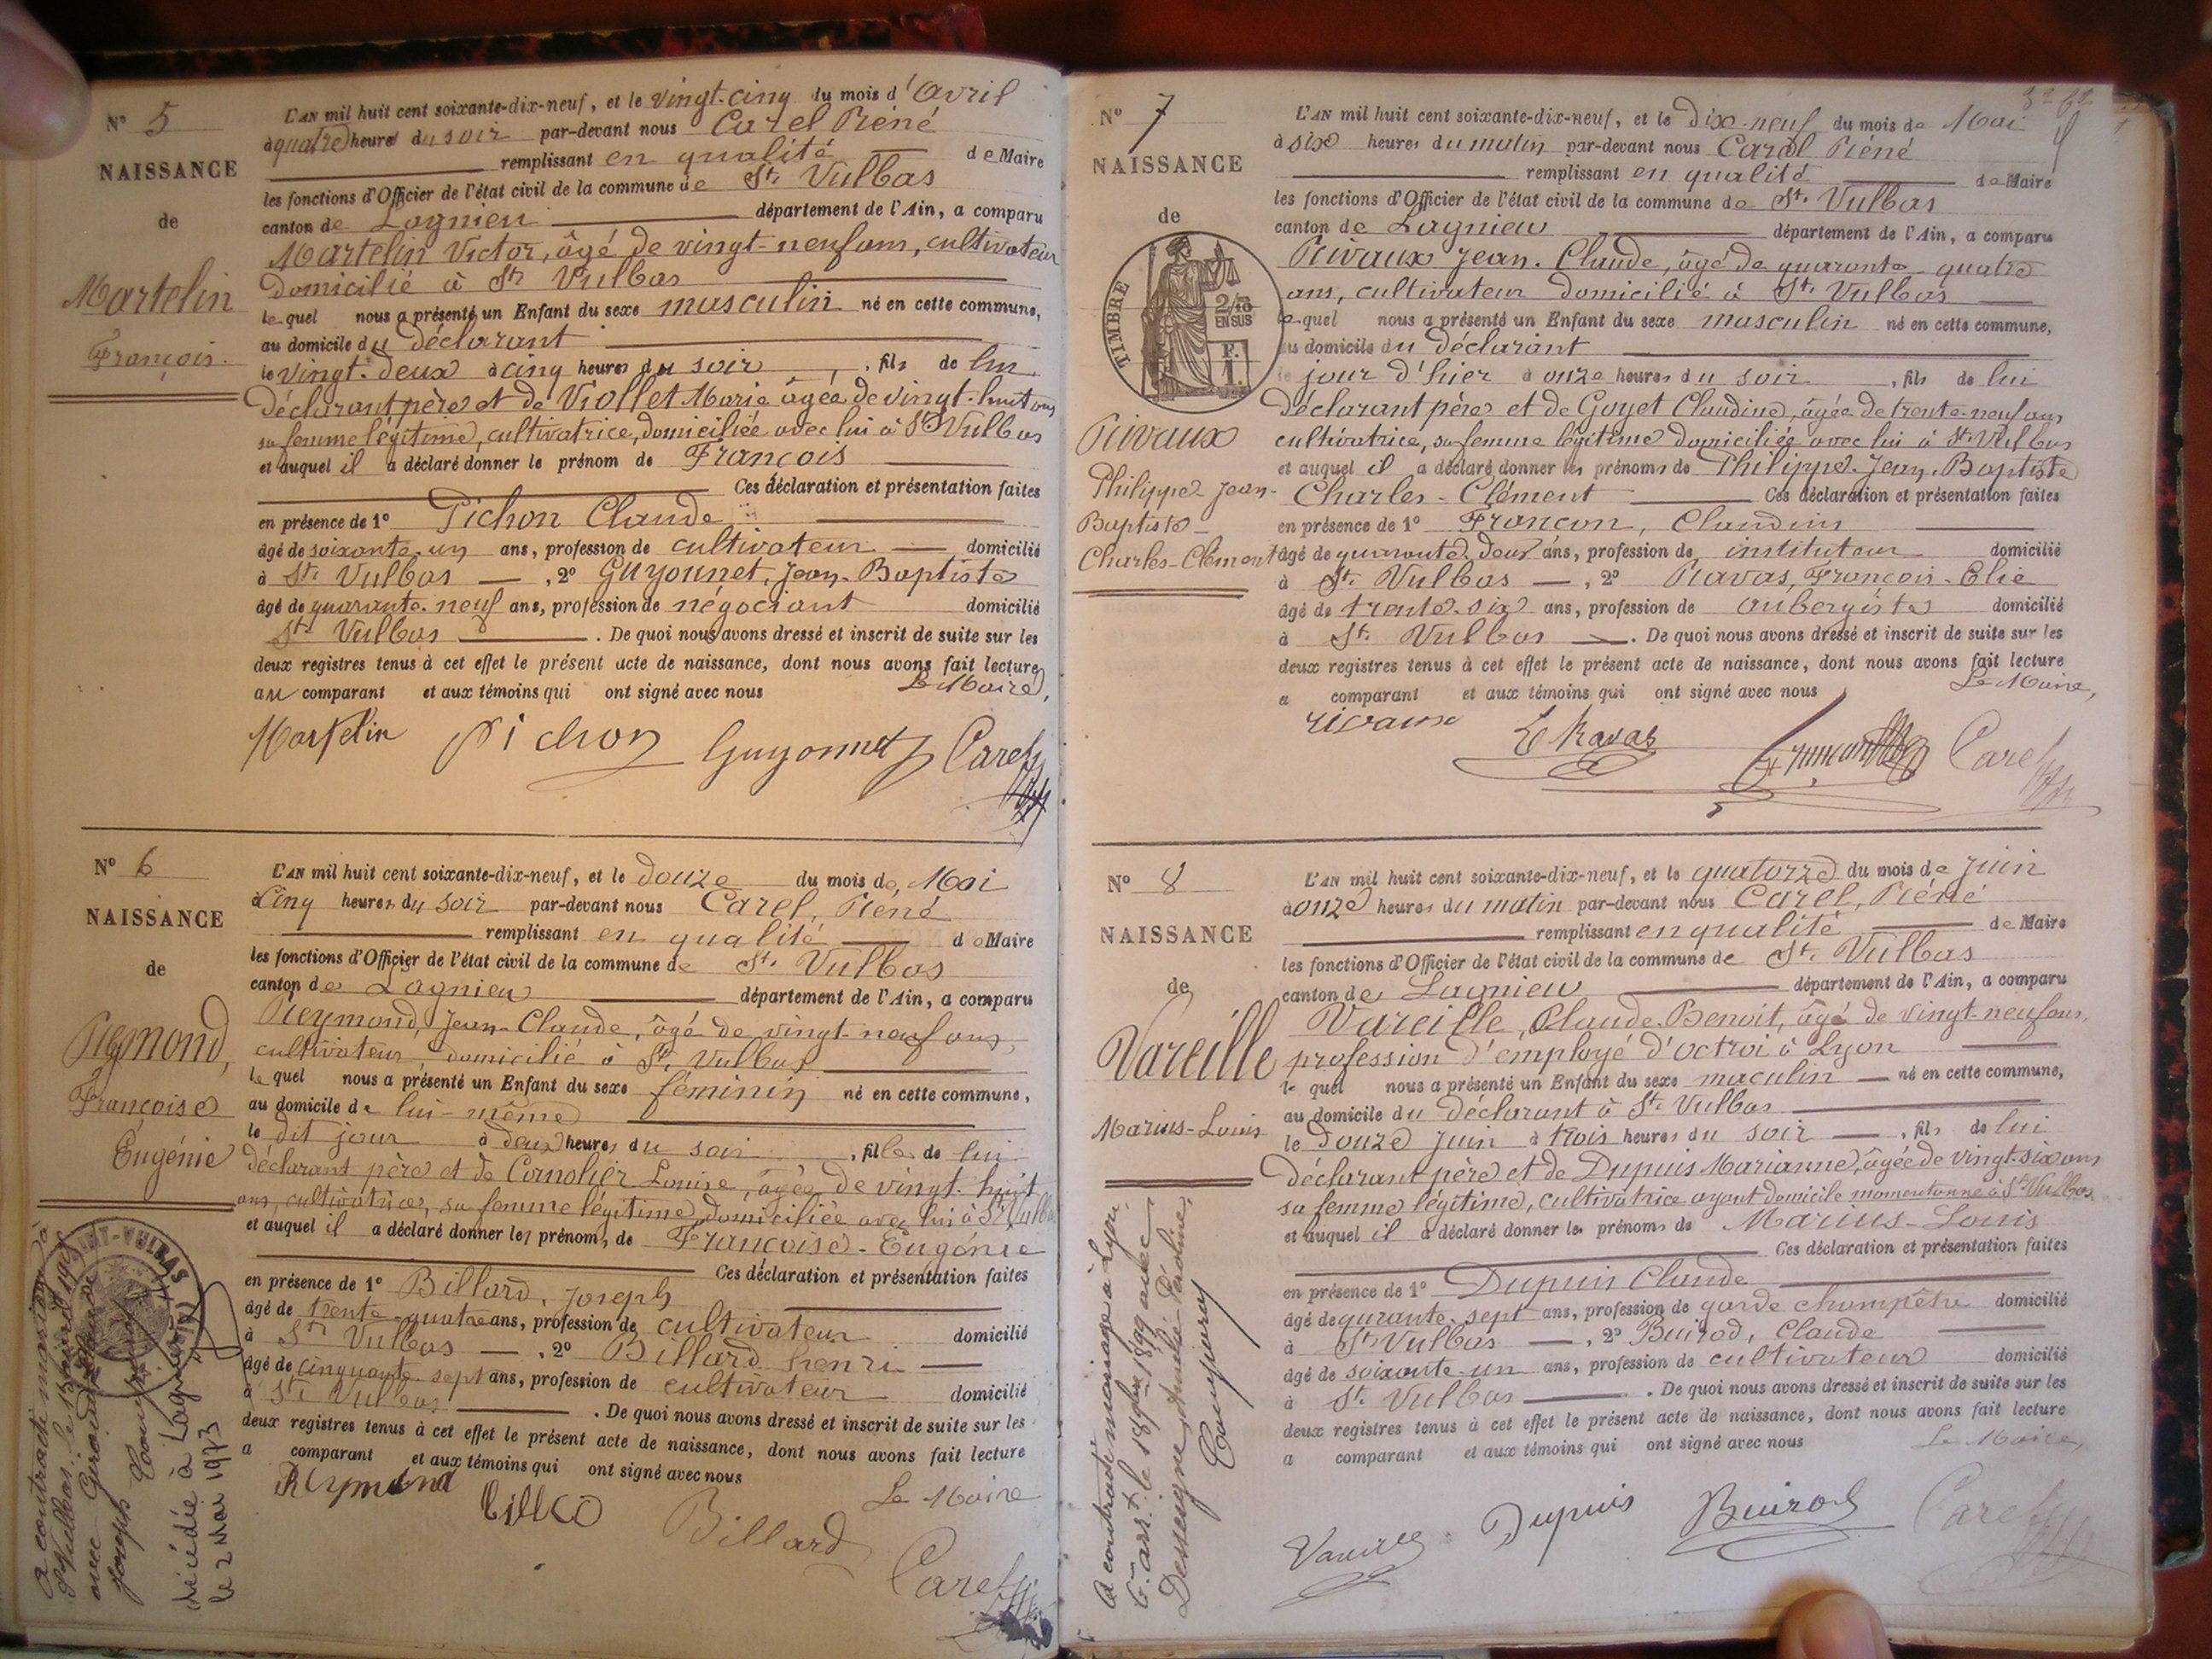 N° 5
NAISSANCE
de
Martelin
François
L'AN mil huit cent soixante-dix-neuf, et le vingt-cinq du mois d'Avril
à quatre heures du soir par-devant nous Carel Réné
remplissant en qualité de Maire
les fonctions d'Officier de l'état civil de la commune de St. Vulbas
canton de Lagnieu département de l'Ain, a comparu
Martelin Victor, âgé de vingt-neuf ans, cultivateur
domicilié à St Vulbas
le quel nous a présenté un Enfant du sexe masculin né en cette commune,
au domicile du déclarant
le vingt-deux à cinq heures du soir, fils de lui
déclarant père et de Viollet Marie âgée de vingt-huit ans
sa femme légitime, cultivatrice, domiciliée avec lui à St Vulbas
et auquel il a déclaré donner le prénom de François
Ces déclaration et présentation faites
en présence de 1° Pichon Claude
âgé de soixante-un ans, profession de cultivateur domicilié
à St. Vulbas, 2° Guyonnet, Jean-Baptiste
âgé de quarante-neuf ans, profession de négociant domicilié
St. Vulbas. De quoi nous avons dressé et inscrit de suite sur les
deux registres tenus à cet effet le présent acte de naissance, dont nous avons fait lecture
au comparant et aux témoins qui ont signé avec nous Le Maire,
Martelin Pichon Guyonnet Carel
N° 6
NAISSANCE
de
Reymond,
Françoise
Eugénie
L'AN mil huit cent soixante-dix-neuf, et le douze du mois de Mai
à Cinq heures du soir par-devant nous Carel, Réné
remplissant en qualité de Maire
les fonctions d'Officier de l'état civil de la commune de St. Vulbas
canton de Lagnieu département de l'Ain, a comparu
Reymond, Jean-Claude, âgé de vingt-neuf ans,
cultivateur domicilié à St. Vulbas
le quel nous a présenté un Enfant du sexe féminin né en cette commune,
au domicile de lui-même
le dit jour à deux heures du soir, fille de lui
déclarant père et de Louise, âgée de vingt-huit
ans, cultivatrice, sa femme légitime, domiciliée avec lui à St Vulbas
et auquel il a déclaré donner les prénoms de Françoise-Eugénie
Ces déclaration et présentation faites
en présence de 1° Billard, Joseph
âgé de trente-quatre ans, profession de cultivateur domicilié
à St. Vulbas, 2° Billard henri
âgé de cinquante-sept ans, profession de cultivateur domicilié
à St. Vulbas. De quoi nous avons dressé et inscrit de suite sur les
deux registres tenus à cet effet le présent acte de naissance, dont nous avons fait lecture
a comparant et aux témoins qui ont signé avec nous
Le Maire
Reymond Billard
Carel
A contracté mariage à
St Vulbas, le
avec
Joseph
décédée à Lagnieu
le 2 Mai 1973
N° 7
NAISSANCE
de
TIMBRE
2/10
EN SUS
F.
1
Rivaux
Philippe-Jean-
Baptiste-
Charles-Clément
L'AN mil huit cent soixante-dix-neuf, et le dix-neuf du mois de Mai
à six heures du matin par-devant nous Carel Réné
remplissant en qualité de Maire
les fonctions d'Officier de l'état civil de la commune de St. Vulbas
canton de Lagnieu département de l'Ain, a comparu
Rivaux Jean-Claude, âgé de quarante-quatre
ans, cultivateur domicilié à St. Vulbas
le quel nous a présenté un Enfant du sexe masculin né en cette commune,
au domicile du déclarant
le jour d'hier à onze heures du soir, fils de lui
déclarant père et de Goyet Claudine, âgée de trente-neuf ans
cultivatrice, sa femme légitime domiciliée avec lui à St. Vulbas
et auquel il a déclaré donner les prénoms de Philippe-Jean-Baptiste
Charles-Clément Ces déclaration et présentation faites
en présence de 1° Françon, Claudius
âgé de quarante-deux ans, profession de instituteur domicilié
à St. Vulbas, 2° Ravas, François-Elie
âgé de trente-six ans, profession de aubergiste domicilié
à St. Vulbas. De quoi nous avons dressé et inscrit de suite sur les
deux registres tenus à cet effet le présent acte de naissance, dont nous avons fait lecture
a comparant et aux témoins qui ont signé avec nous Le Maire,
rivaux E Ravas Carel
N° 8
NAISSANCE
de
Vareille
Marius-Louis
L'AN mil huit cent soixante-dix-neuf, et le quatorze du mois de Juin
à onze heures du matin par-devant nous Carel, Réné
remplissant en qualité de Maire
les fonctions d'Officier de l'état civil de la commune de St. Vulbas
canton de Lagnieu département de l'Ain, a comparu
Vareille, Claude-Benoit, âgé de vingt-neuf ans,
profession d'employé d'octroi à Lyon
le quel nous a présenté un Enfant du sexe maculin né en cette commune,
au domicile du déclarant à St. Vulbas
le douze Juin à trois heures du soir, fils de lui
déclarant père et de Dupuis Marianne, âgée de vingt-six ans
sa femme légitime, cultivatrice ayant domicile momentanné à St. Vulbas
et auquel il a déclaré donner les prénoms de Marius-Louis
Ces déclaration et présentation faites
en présence de 1° Dupuis Claude
âgé de qurante-sept ans, profession de garde champêtre domicilié
à St. Vulbas, 2° Buirod, Claude
âgé de soixante-un ans, profession de cultivateur domicilié
à St. Vulbas. De quoi nous avons dressé et inscrit de suite sur les
deux registres tenus à cet effet le présent acte de naissance, dont nous avons fait lecture
a comparant et aux témoins qui ont signé avec nous Le Maire,
Vareille Dupuis Buirod Carel
A contracté mariage à Lyon,
6e arrt. le 18 1899 avec
Desseigne,